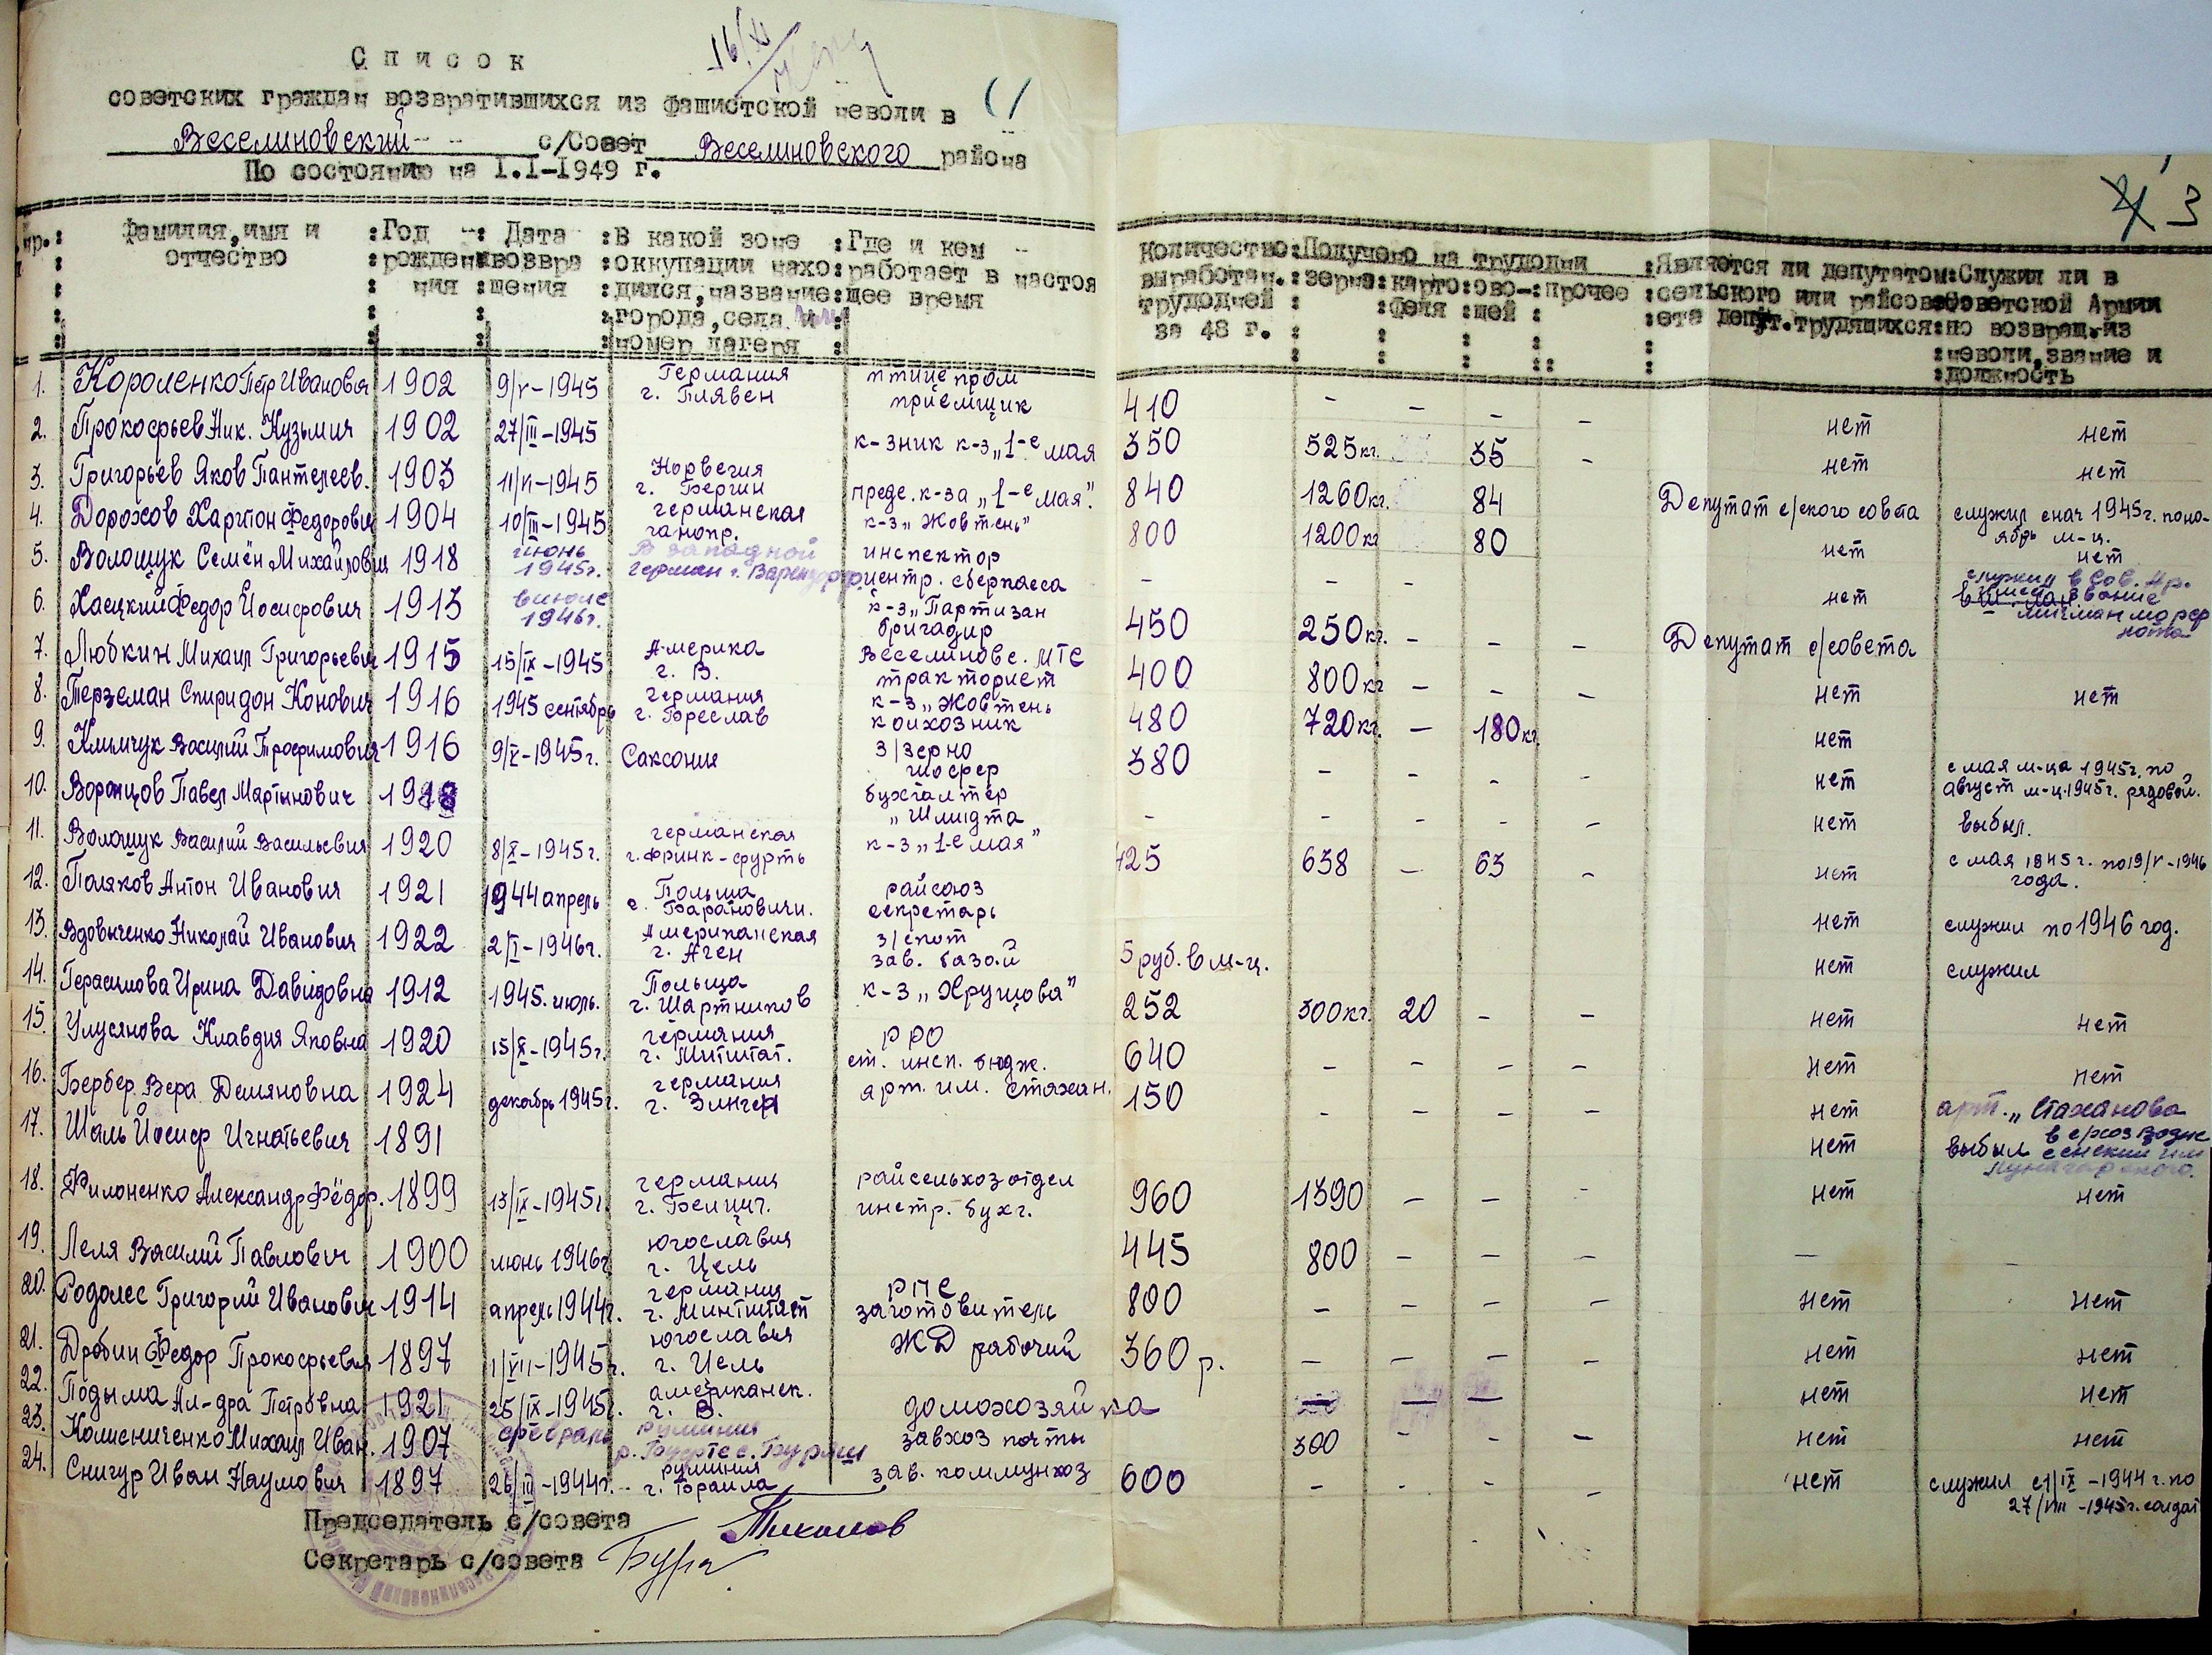 Список
советских граждан возвратившихся из фашистской неволи в
Веселиновский с/Совет Веселиновского района
По состоянию на I.I-1949 г.
16/XI
4 3
пр.: Фамилия, имя и отчество : Год рождения : Дата возвращения : В какой зоне оккупации находился, название города, села и номер лагеря : Где и кем работает в настоящее время : количество выработан. трудодней за 48 г. : Получено на трудодни : зерна : картофеля : овощей : прочее : Является ли депутатом сельского или райсовета депут. трудящихся : Служил ли в Советской Армии по возвращ. из неволи, звание и должность
1. Короленко Петр Иванович 1902 9/V-1945 Германия г. Плявен птицепром приемщик 410 - - - - нет нет
2. Прокофьев Ник. Кузьмич 1902 27/III-1945 к-зник к-з „1-е мая 350 525 кг. 35 - нет нет
3. Григорьев Яков Пантелеев. 1903 11/VI-1945 Норвегия г. Бергин предс. к-за „1-е мая". 840 1260 кг. 84 Депутат с/ского совета служил с нач 1945 г. по ноябрь м-ц.
4. Дорохов Харитон Федорович 1904 10/III-1945 германская ганопр. к-з „Жовтень" 800 1200 кг 80 нет нет
5. Волощук Семён Михайлович 1918 июнь 1945г. В западной герман г. инспектор центр. сберкасса - - - нет служил в Сов. Ар. имел звание мичман морфлота
6. Хаецкий Федор Йосифович 1913 в июле 1946г. к-з „Партизан бригадир 450 250 кг. - - - Депутат с/совета
7. Любкин Михаил Григорьевич 1915 15/IX-1945 Америка г. В. Веселиновс. МТС тракторист 400 800 кг - - - нет нет
8. Терземан Спиридон Конович 1916 1945 сентябрь германия г. Бреслав к-з „Жовтень колхозник 480 720 кг. - 180 кг. нет
9. Климчук Василий Трофимович 1916 9/V-1945 г. Саксония З/зерно шофер 380 - - - - нет с мая м-ца 1945 г. по август м-ц 1945 г. рядовой.
10. Воронцов Павел Мартынович 1918 бухгалтер „Шмидта - - - - - нет выбыл.
11. Волощук Василий Васильевич 1920 8/X-1945 г. германская г. Фринк-фурть к-з „1-е мая" 425 638 - 63 - нет с мая 1945 г. по 19/V-1946 года.
12. Поляков Антон Иванович 1921 1944 апрель Польша г. Барановичи. райсоюз секретарь нет служил по 1946 год.
13. Вдовыченко Николай Иванович 1922 2/I-1946 г. Американская г. Аген З/скот зав. базой 5 руб. в м-ц. нет служил
14. Герасимова Ирина Давидовна 1912 1945. июль. Польща г. Шартников к-з „Хрущова" 252 300 кг. 20 - - нет нет
15. Улусянова Клавдия Яковна 1920 15/X-1945 г. германия г. Митштат. РРО ст. инсп. бюдж. 640 - - - - нет нет
16. Бербер Вера Демяновна 1924 декабрь 1945 г. германия г. Зингер арт. им. Стахан. 150 - - - - нет арт. „Стаханова
17. Шаль Йосиф Игнатьевич 1891 нет выбыл
18. Филоненко Александр Фёдор. 1899 13/IX-1945 г германия г. Белциг. райсельхозотдел инстр. бухг. 960 1390 - - - нет нет
19. Леля Василий Павлович 1900 июнь 1946 г югославия г. Цель 445 800 - - - - -
20. Родолес Григорий Иванович 1914 апрель 1944 г. германия г. Минтштат РПС заготовитель 800 - - - - нет нет
21. Дробин Федор Прокофьевич 1897 1/VII-1945 г. югославия г. Цель ЖД рабочий 360 р. - - - - нет нет
22. Подыма Ал-дра Петровна 1921 25/IX-1945 г. американск. г. В. домохозяйка - - - нет нет
23. Колисниченко Михаил Иван. 1907 февраль румыния завхоз почты 300 - - - нет нет
24. Снигур Иван Наумович 1897 26/III-1944 г. румыния г. Браила зав. коммунхоз 600 - - - - нет служил с 1/IX-1944 г. по 27/VIII-1945 г. солдат
Председатель с/совета
Секретарь с/совета